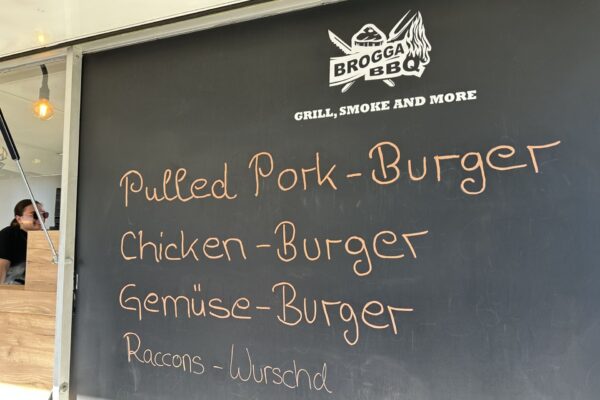 BROGGA
BBQ
GRILL, SMOKE AND MORE
Pulled Pork-Burger
Chicken-Burger
Gemüse-Burger
Raccons-Wurschd